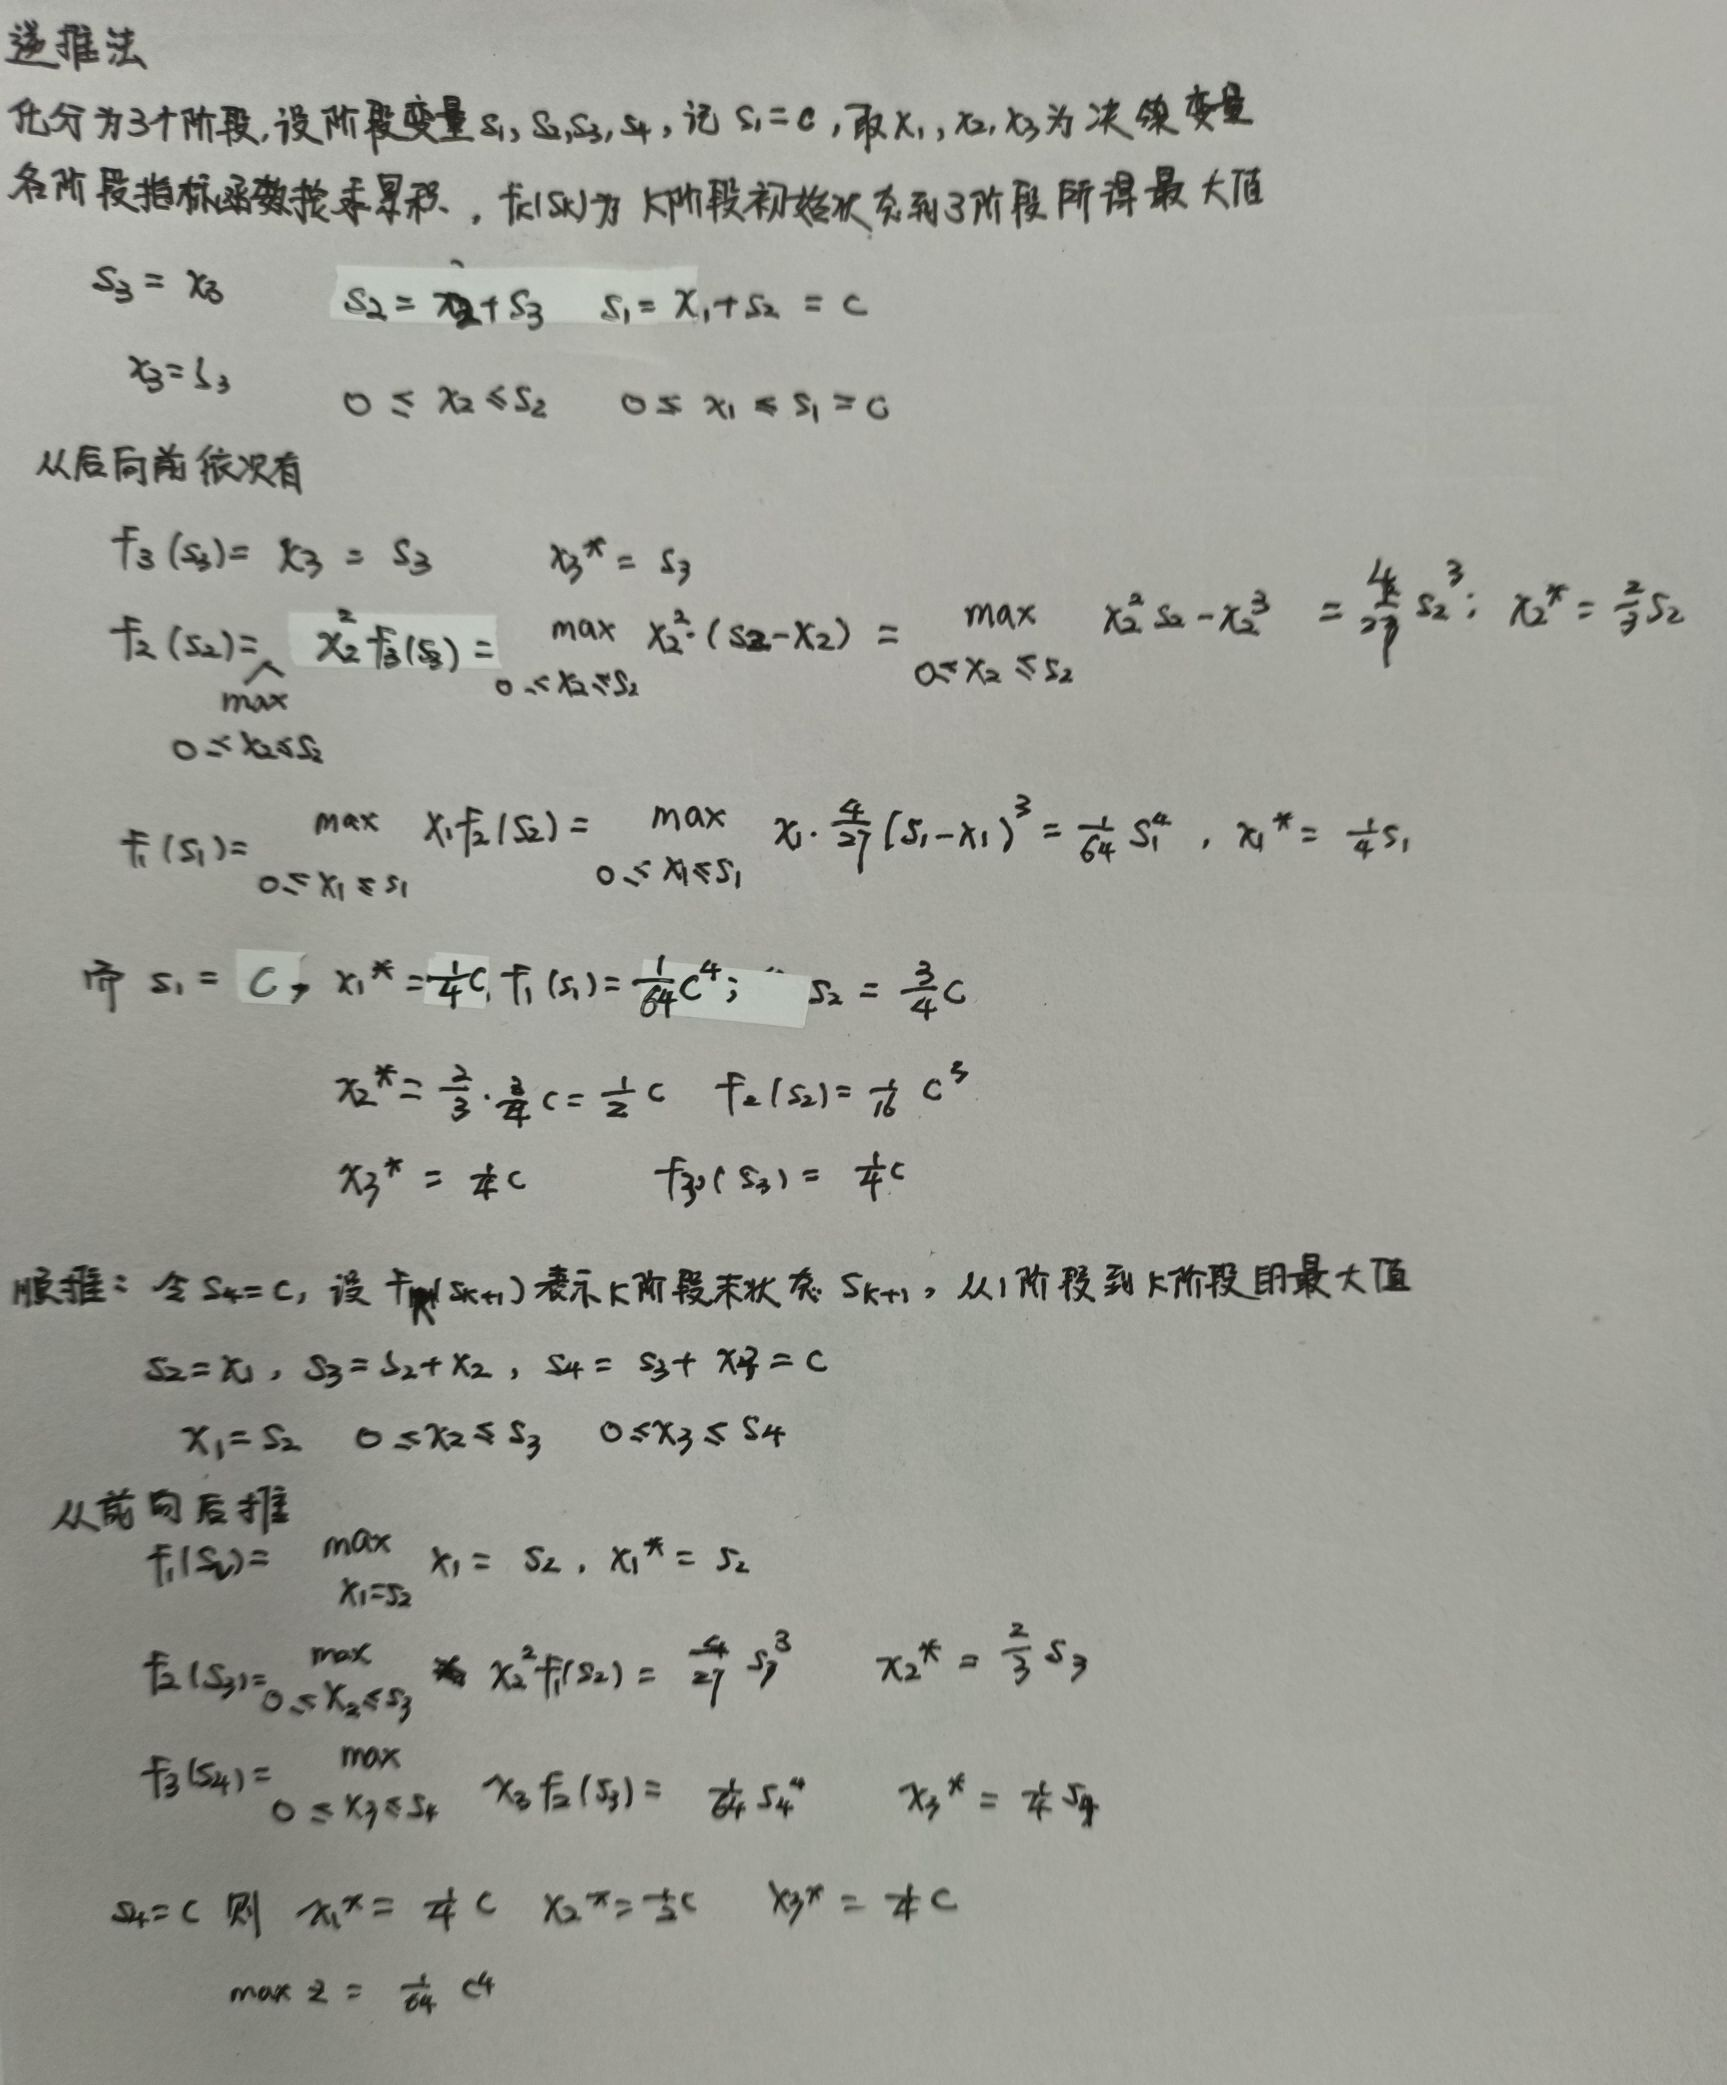 逆推法
化分为3个阶段,设阶段变量 s₁, s₂, s₃, s₄, 记 s₁=c, 取 x₁, x₂, x₃ 为决策变量
各阶段指标函数按乘累积, fₖ(sₖ)为 k阶段初始状态到3阶段所得最大值
s₃ = x₃   s₂ = x₂+s₃   s₁ = x₁+s₂ = c
x₃=s₃   0 ≤ x₂ ≤ s₂   0 ≤ x₁ ≤ s₁ = c
从后向前依次有
f₃(s₃) = x₃ = s₃   x₃* = s₃
f₂(s₂) = max_{0≤x₂≤s₂} x₂² f₃(s₃) = max_{0≤x₂≤s₂} x₂²·(s₂-x₂) = max_{0≤x₂≤s₂} x₂²s₂-x₂³ = 4/27 s₂³; x₂* = 2/3 s₂
f₁(s₁) = max_{0≤x₁≤s₁} x₁f₂(s₂) = max_{0≤x₁≤s₁} x₁·4/27(s₁-x₁)³ = 1/64 s₁⁴, x₁* = 1/4 s₁
而 s₁ = c, x₁* = 1/4 c, f₁(s₁) = 1/64 c⁴; s₂ = 3/4 c
x₂* = 2/3·3/4 c = 1/2 c   f₂(s₂) = 1/16 c³
x₃* = 1/4 c   f₃(s₃) = 1/4 c
顺推: 令 s₄=c, 设 fₖ(sₖ₊₁) 表示 k阶段末状态 sₖ₊₁, 从1阶段到k阶段的最大值
s₂=x₁, s₃=s₂+x₂, s₄ = s₃+x₃ = c
x₁=s₂   0≤x₂≤s₃   0≤x₃≤s₄
从前向后推
f₁(s₂) = max_{x₁=s₂} x₁ = s₂, x₁* = s₂
f₂(s₃) = max_{0≤x₂≤s₃} x₂²f₁(s₂) = 4/27 s₃³   x₂* = 2/3 s₃
f₃(s₄) = max_{0≤x₃≤s₄} x₃f₂(s₃) = 1/64 s₄⁴   x₃* = 1/4 s₄
s₄=c 则 x₁* = 1/4 c   x₂* = 1/2 c   x₃* = 1/4 c
max z = 1/64 c⁴